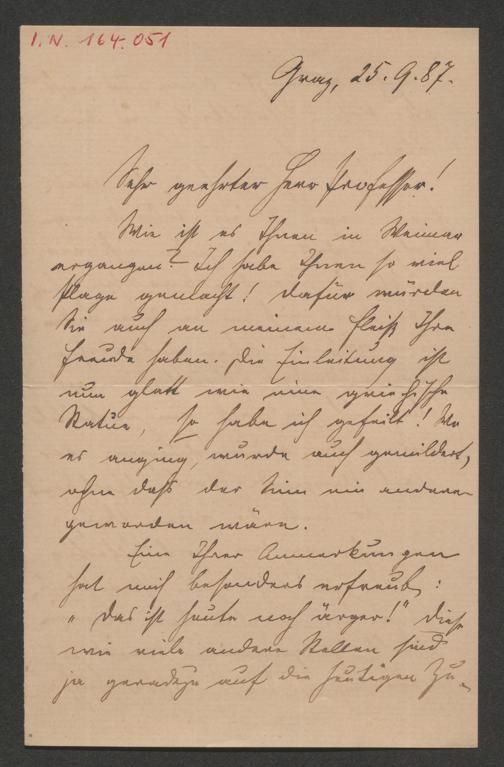 I.N. 164.051
Graz, 25.9.87.
Sehr geehrter Herr Professor!
Wie ist es Ihnen in Weimar
ergangen? Ich habe Ihnen so viel
Plage gemacht! Dafür würden
Sie auch an meinem Fleiß Ihre
Freude haben. Die Einleitung ist
nun glatt wie eine griechische
Statue, so habe ich gefeilt! Wo
es anging, wurde auch gemildert,
ohne daß der Sinn ein anderer
geworden wäre.
Eine Ihrer Anmerkungen
hat mich besonders erfreut:
"Das ist heute noch ärger!" Diese
wie viele andere Stellen sind
ja geradezu auf die heutigen Zu-